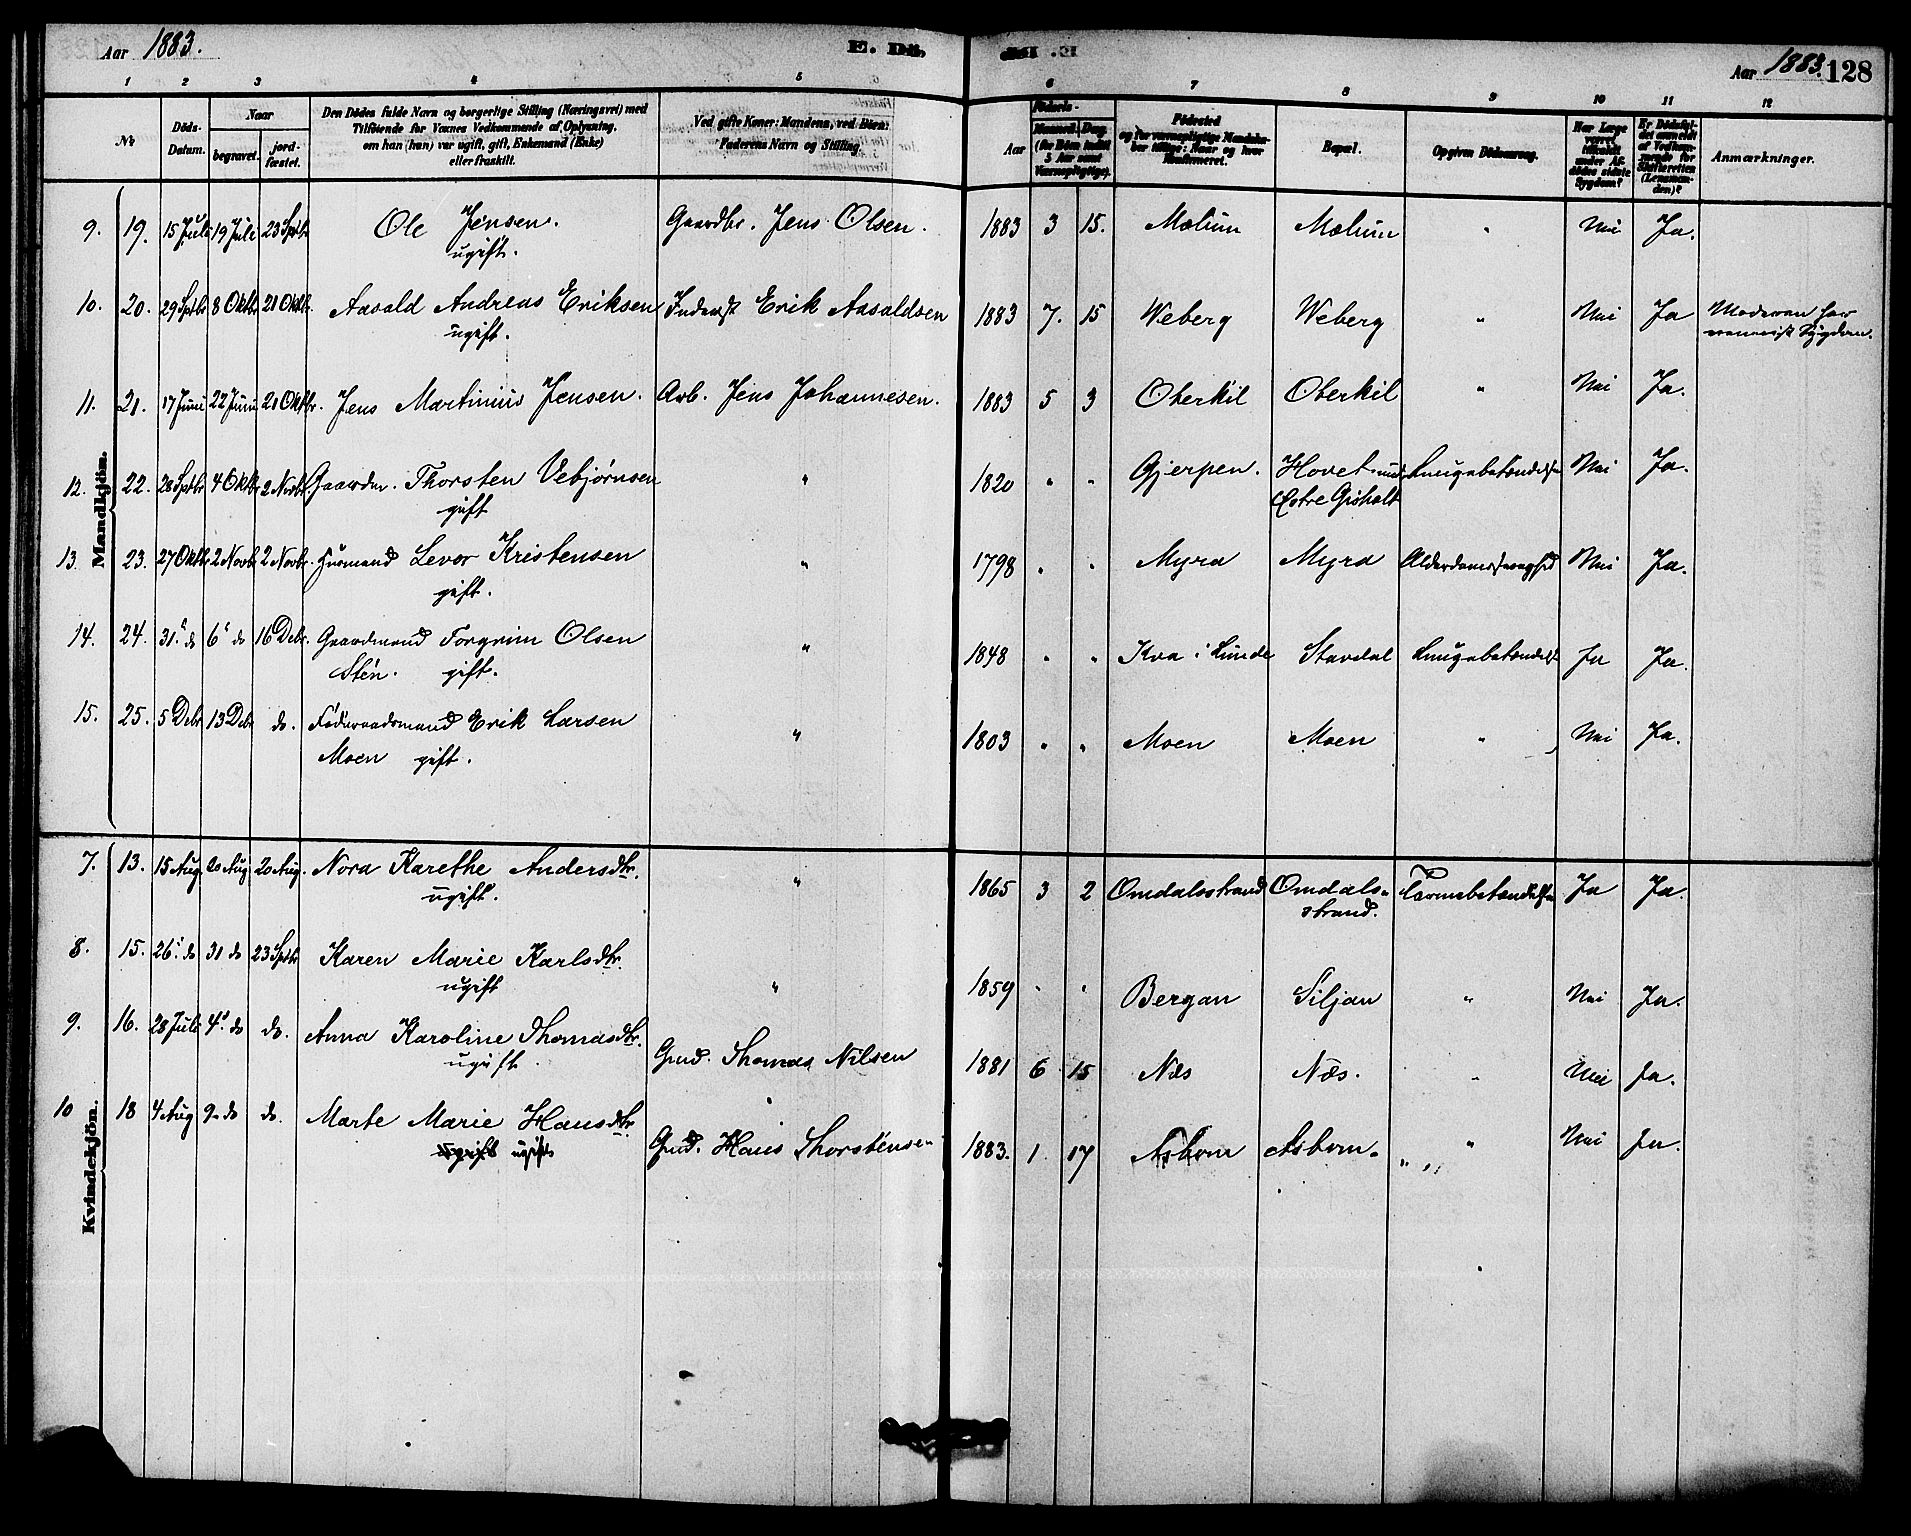 Aar 1883. E. Dö- de. Aar 1883. 128
1 2 3 4 5 6 7 8 9 10 11 12
№ Döds-Datum. Naar begravet. jord-fæstet. Den Dödes fulde Navn og borgerlige Stilling (Næringsvei) med Tilföiende for Voxnes Vedkommende af Oplysning, om han (hun) var ugift, gift, Enkemand (Enke) eller fraskilt. Ved gifte Koner: Mandens, ved Börn: Faderens Navn og Stilling. Födsels- Aar Maaned. Dag. (for Börn indtil 5 Aar samt Værnepligtige). Födested og for værnepligtige Mandskaber tillige: Naar og hvor Konfirmeret. Bopæl. Opgiven Dödsaarsag. Har Læge været tilkaldt under Afdödes sidste Sygdom? Er Dödsfaldet anmeldt af Vedkommende for Skifteretten (Lensmanden)? Anmærkninger.
Mandkjön.
9. 19. 15 Juli 19 Juli 23 Sptbr. Ole Jensen. Gaardbr. Jens Olsen. 1883 3 15. Mælum Mælum " Nei Ja.
ugift.
10. 20. 29 Sptbr 8 Oktbr 21 Oktbr. Aasald Andreas Eriksen Inderst Erik Aasaldsen 1883 7. 15 Weberg Weberg " Nei Ja Moderen har
ugift. venerisk Sygdom.
11. 21. 17 Juni 22 Juni 21 Oktbr. Jens Martinius Jensen. Arb. Jens Johannesen. 1883 5 3 Oterkil Oterkil " Nei Ja.
12. 22. 28 Sptbr 4 Oktbr 2 Novbr Gaardm. Thorsten Vebjørnsen " 1820 " " Gjerpen. Hovet und. Lungebetændelse Nei Ja.
gift Østre Gisholt
13. 23. 27 Oktbr. 2 Novbr 2 Novbr. Husmand Levor Kristensen " 1798 " " Myra Myra Alderdomssvaghed Nei Ja.
gift.
14. 24. 31. do 6 do 16 Debr. Gaardmand Torgrim Olsen " 1848 " " Kva i Lunde Stavdal Lungebetændelse Ja Ja.
Stén. gift.
15. 25. 5 Debr. 13 Debr do. Føderaadsmand Erik Larsen " 1803 " " Moen Moen " Nei Ja.
Moen gift.
Kvindekjön.
7. 13. 15 Aug. 20 Aug. 20 Aug. Nora Karethe Andersdtr. " 1865 3 2 Omdalsstrand Omdals- Tarmebetændelse Ja Ja.
ugift. strand.
8. 15. 26. do 31 do 23 Sptbr Karen Marie Karlsdtr. " 1859 " " Bergan Siljan " Nei Ja.
ugift
9. 16. 28 Juli 4. do do. Anna Karoline Thomasdtr. Gmd. Thomas Nilsen 1881 6 15 Næs Næs. " Nei Ja.
ugift.
10 18 4 Aug 9 do do. Marte Marie Hansdtr. Gmd. Hans Thorstensen 1883. 1 17 Asbom Asbom. " Nei Ja.
ugift ugift